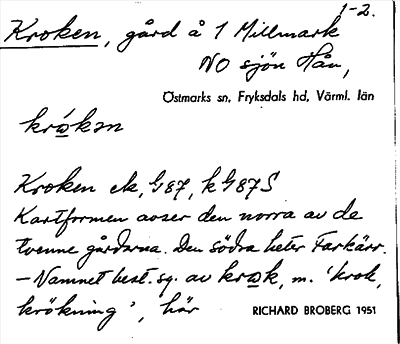 1-2.
Kroken, gård å 1 Millmark
NO sjön Hån,
Östmarks sn, Fryksdals hd, Värml. län
kro̲kən
Kroken ek, G87, kG87S
Kartformen avser den norra av de
tvenne gårdarna. Den södra heter Farkärr.
– Namnet best. sg. av kro̲k, m. 'krok,
krökning', här
RICHARD BROBERG 1951